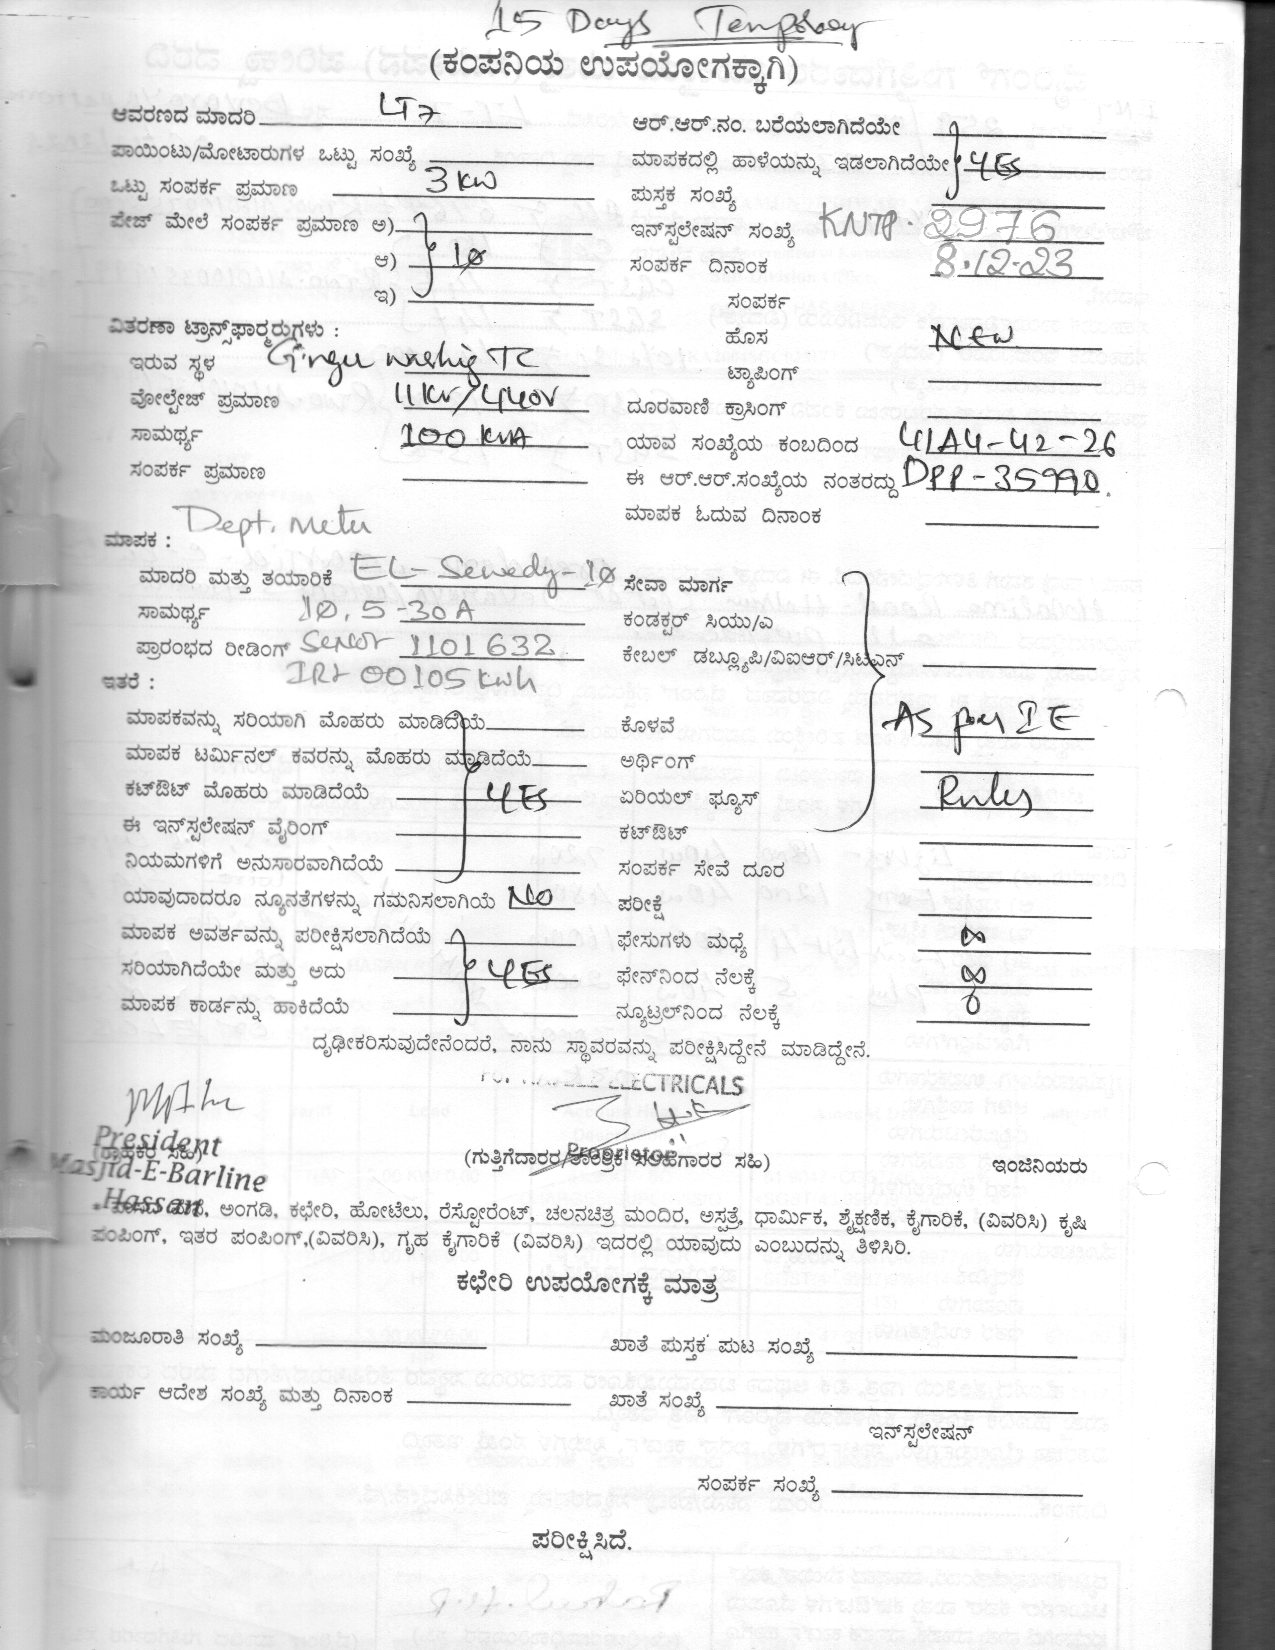 15 Days Temporary
(ಕಂಪನಿಯ ಉಪಯೋಗಕ್ಕಾಗಿ)
ಆವರಣದ ಮಾದರಿ LT7
ಪಾಯಿಂಟು/ಮೋಟಾರುಗಳ ಒಟ್ಟು ಸಂಖ್ಯೆ
ಒಟ್ಟು ಸಂಪರ್ಕ ಪ್ರಮಾಣ 3 KW
ಪೇಜ್ ಮೇಲೆ ಸಂಪರ್ಕ ಪ್ರಮಾಣ ಅ)
ಆ) 1Ø
ಇ)
ವಿತರಣಾ ಟ್ರಾನ್ಸ್‌ಫಾರ್ಮರುಗಳು :
ಇರುವ ಸ್ಥಳ TC
ವೋಲ್ಟೇಜ್ ಪ್ರಮಾಣ 11KV/440V
ಸಾಮರ್ಥ್ಯ 100 KVA
ಸಂಪರ್ಕ ಪ್ರಮಾಣ
Dept. Meter
ಮಾಪಕ :
ಮಾದರಿ ಮತ್ತು ತಯಾರಿಕೆ EL-Sewedy-1Ø
ಸಾಮರ್ಥ್ಯ 1Ø, 5-30A
ಪ್ರಾರಂಭದ ರೀಡಿಂಗ್ 1101632
ಇತರೆ : IR+ 00105 kwh
ಮಾಪಕವನ್ನು ಸರಿಯಾಗಿ ಮೊಹರು ಮಾಡಿದೆಯೆ
ಮಾಪಕ ಟರ್ಮಿನಲ್ ಕವರನ್ನು ಮೊಹರು ಮಾಡಿದೆಯೆ
ಕಟ್‌ಔಟ್ ಮೊಹರು ಮಾಡಿದೆಯೆ YES
ಈ ಇನ್‌ಸ್ಟಲೇಷನ್ ವೈರಿಂಗ್
ನಿಯಮಗಳಿಗೆ ಅನುಸಾರವಾಗಿದೆಯೆ
ಯಾವುದಾದರೂ ನ್ಯೂನತೆಗಳನ್ನು ಗಮನಿಸಲಾಗಿಯೆ NO
ಮಾಪಕ ಅವರ್ತವನ್ನು ಪರೀಕ್ಷಿಸಲಾಗಿದೆಯೆ
ಸರಿಯಾಗಿದೆಯೇ ಮತ್ತು ಅದು YES
ಮಾಪಕ ಕಾರ್ಡನ್ನು ಹಾಕಿದೆಯೆ
ಆರ್.ಆರ್.ನಂ. ಬರೆಯಲಾಗಿದೆಯೇ
ಮಾಪಕದಲ್ಲಿ ಹಾಳೆಯನ್ನು ಇಡಲಾಗಿದೆಯೇ YES
ಪುಸ್ತಕ ಸಂಖ್ಯೆ
ಇನ್‌ಸ್ಟಲೇಷನ್ ಸಂಖ್ಯೆ KNTP. 2976
ಸಂಪರ್ಕ ದಿನಾಂಕ 8.12.23
ಸಂಪರ್ಕ
ಹೊಸ New
ಟ್ಯಾಪಿಂಗ್
ದೂರವಾಣಿ ಕ್ರಾಸಿಂಗ್
ಯಾವ ಸಂಖ್ಯೆಯ ಕಂಬದಿಂದ 41A4-42-26
ಈ ಆರ್.ಆರ್.ಸಂಖ್ಯೆಯ ನಂತರದ್ದು DPP-35990.
ಮಾಪಕ ಓದುವ ದಿನಾಂಕ
ಸೇವಾ ಮಾರ್ಗ
ಕಂಡಕ್ಟರ್ ಸಿಯು/ಎ
ಕೇಬಲ್ ಡಬ್ಲ್ಯೂಪಿ/ವಿಐಆರ್/ಸಿಟಿಎನ್
ಕೊಳವೆ As per IE
ಅರ್ಥಿಂಗ್
ಏರಿಯಲ್ ಫ್ಯೂಸ್ Rules
ಕಟ್‌ಔಟ್
ಸಂಪರ್ಕ ಸೇವೆ ದೂರ
ಪರೀಕ್ಷೆ
ಫೇಸುಗಳು ಮಧ್ಯೆ ∞
ಫೇಸ್‌ನಿಂದ ನೆಲಕ್ಕೆ ∞
ನ್ಯೂಟ್ರಲ್‌ನಿಂದ ನೆಲಕ್ಕೆ
ದೃಢೀಕರಿಸುವುದೇನೆಂದರೆ, ನಾನು ಸ್ಥಾವರವನ್ನು ಪರೀಕ್ಷಿಸಿದ್ದೇನೆ ಮಾಡಿದ್ದೇನೆ.
ELECTRICALS
President
(ಗ್ರಾಹಕರ ಸಹಿ)
Masjid-E-Barline
Hassan
Proprietor
(ಗುತ್ತಿಗೆದಾರರ/ತಾಂತ್ರಿಕ ಸಲಹೆಗಾರರ ಸಹಿ)
ಇಂಜಿನಿಯರು
ಅಂಗಡಿ, ಕಛೇರಿ, ಹೋಟೆಲು, ರೆಸ್ಟೋರೆಂಟ್, ಚಲನಚಿತ್ರ ಮಂದಿರ, ಅಸ್ಪತ್ರೆ, ಧಾರ್ಮಿಕ, ಶೈಕ್ಷಣಿಕ, ಕೈಗಾರಿಕೆ, (ವಿವರಿಸಿ) ಕೃಷಿ
ಪಂಪಿಂಗ್, ಇತರ ಪಂಪಿಂಗ್,(ವಿವರಿಸಿ), ಗೃಹ ಕೈಗಾರಿಕೆ (ವಿವರಿಸಿ) ಇದರಲ್ಲಿ ಯಾವುದು ಎಂಬುದನ್ನು ತಿಳಿಸಿರಿ.
ಕಛೇರಿ ಉಪಯೋಗಕ್ಕೆ ಮಾತ್ರ
ಮಂಜೂರಾತಿ ಸಂಖ್ಯೆ
ಖಾತೆ ಪುಸ್ತಕ ಪುಟ ಸಂಖ್ಯೆ
ಕಾರ್ಯ ಆದೇಶ ಸಂಖ್ಯೆ ಮತ್ತು ದಿನಾಂಕ
ಖಾತೆ ಸಂಖ್ಯೆ
ಇನ್‌ಸ್ಟಲೇಷನ್
ಸಂಪರ್ಕ ಸಂಖ್ಯೆ
ಪರೀಕ್ಷಿಸಿದೆ.